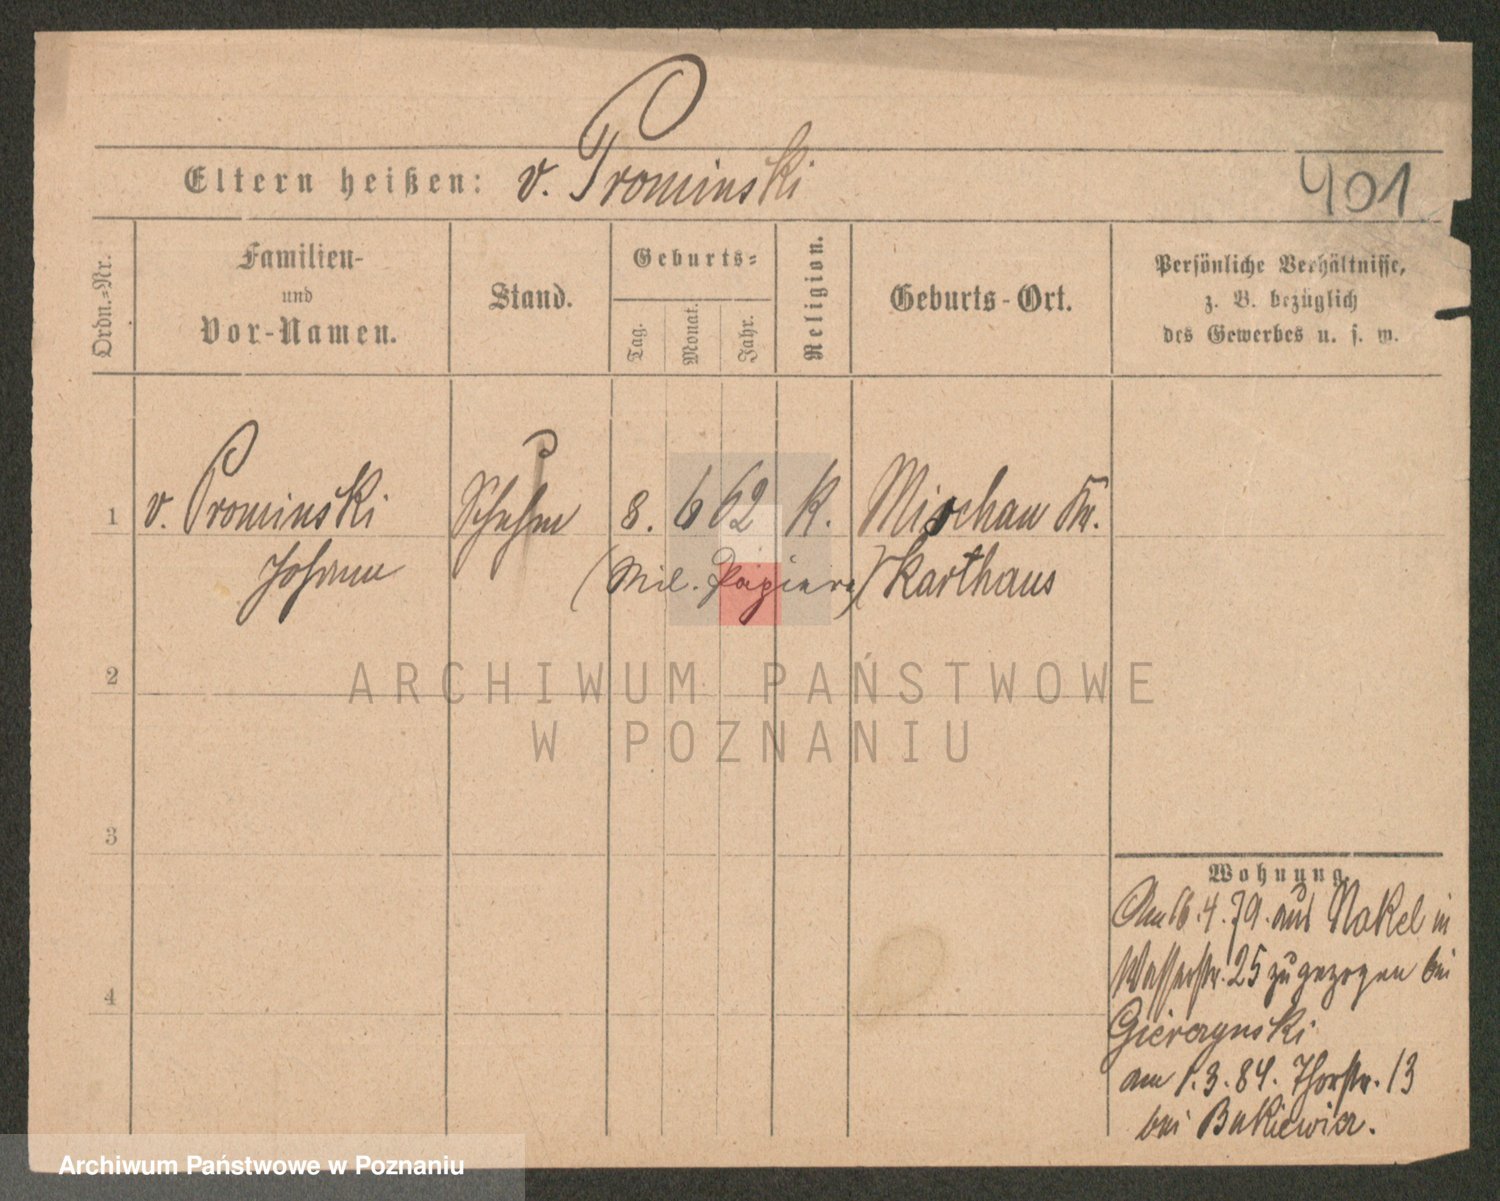 Eltern heißen: v. Prominski
401
Ordn.-Nr.
Familien-
und
Vor-Namen.
Stand.
Geburts-
Tag.
Monat.
Jahr.
Religion.
Geburts-Ort.
Persönliche Verhältnisse,
z. B. bezüglich
des Gewerbes u. s. w.
1 v. Prominski 8. 6 62 K. Mirchau Kr.
Johann (Mil. Papiere) Karthaus
2
3
4
Wohnung
Am 16.4.79. aus Nakel in
Wasserstr. 25 zugezogen bei
Gierczynski
am 1.3.84. Thorstr. 13
bei Bukiewicz.
ARCHIWUM PAŃSTWOWE
W POZNANIU
Archiwum Państwowe w Poznaniu